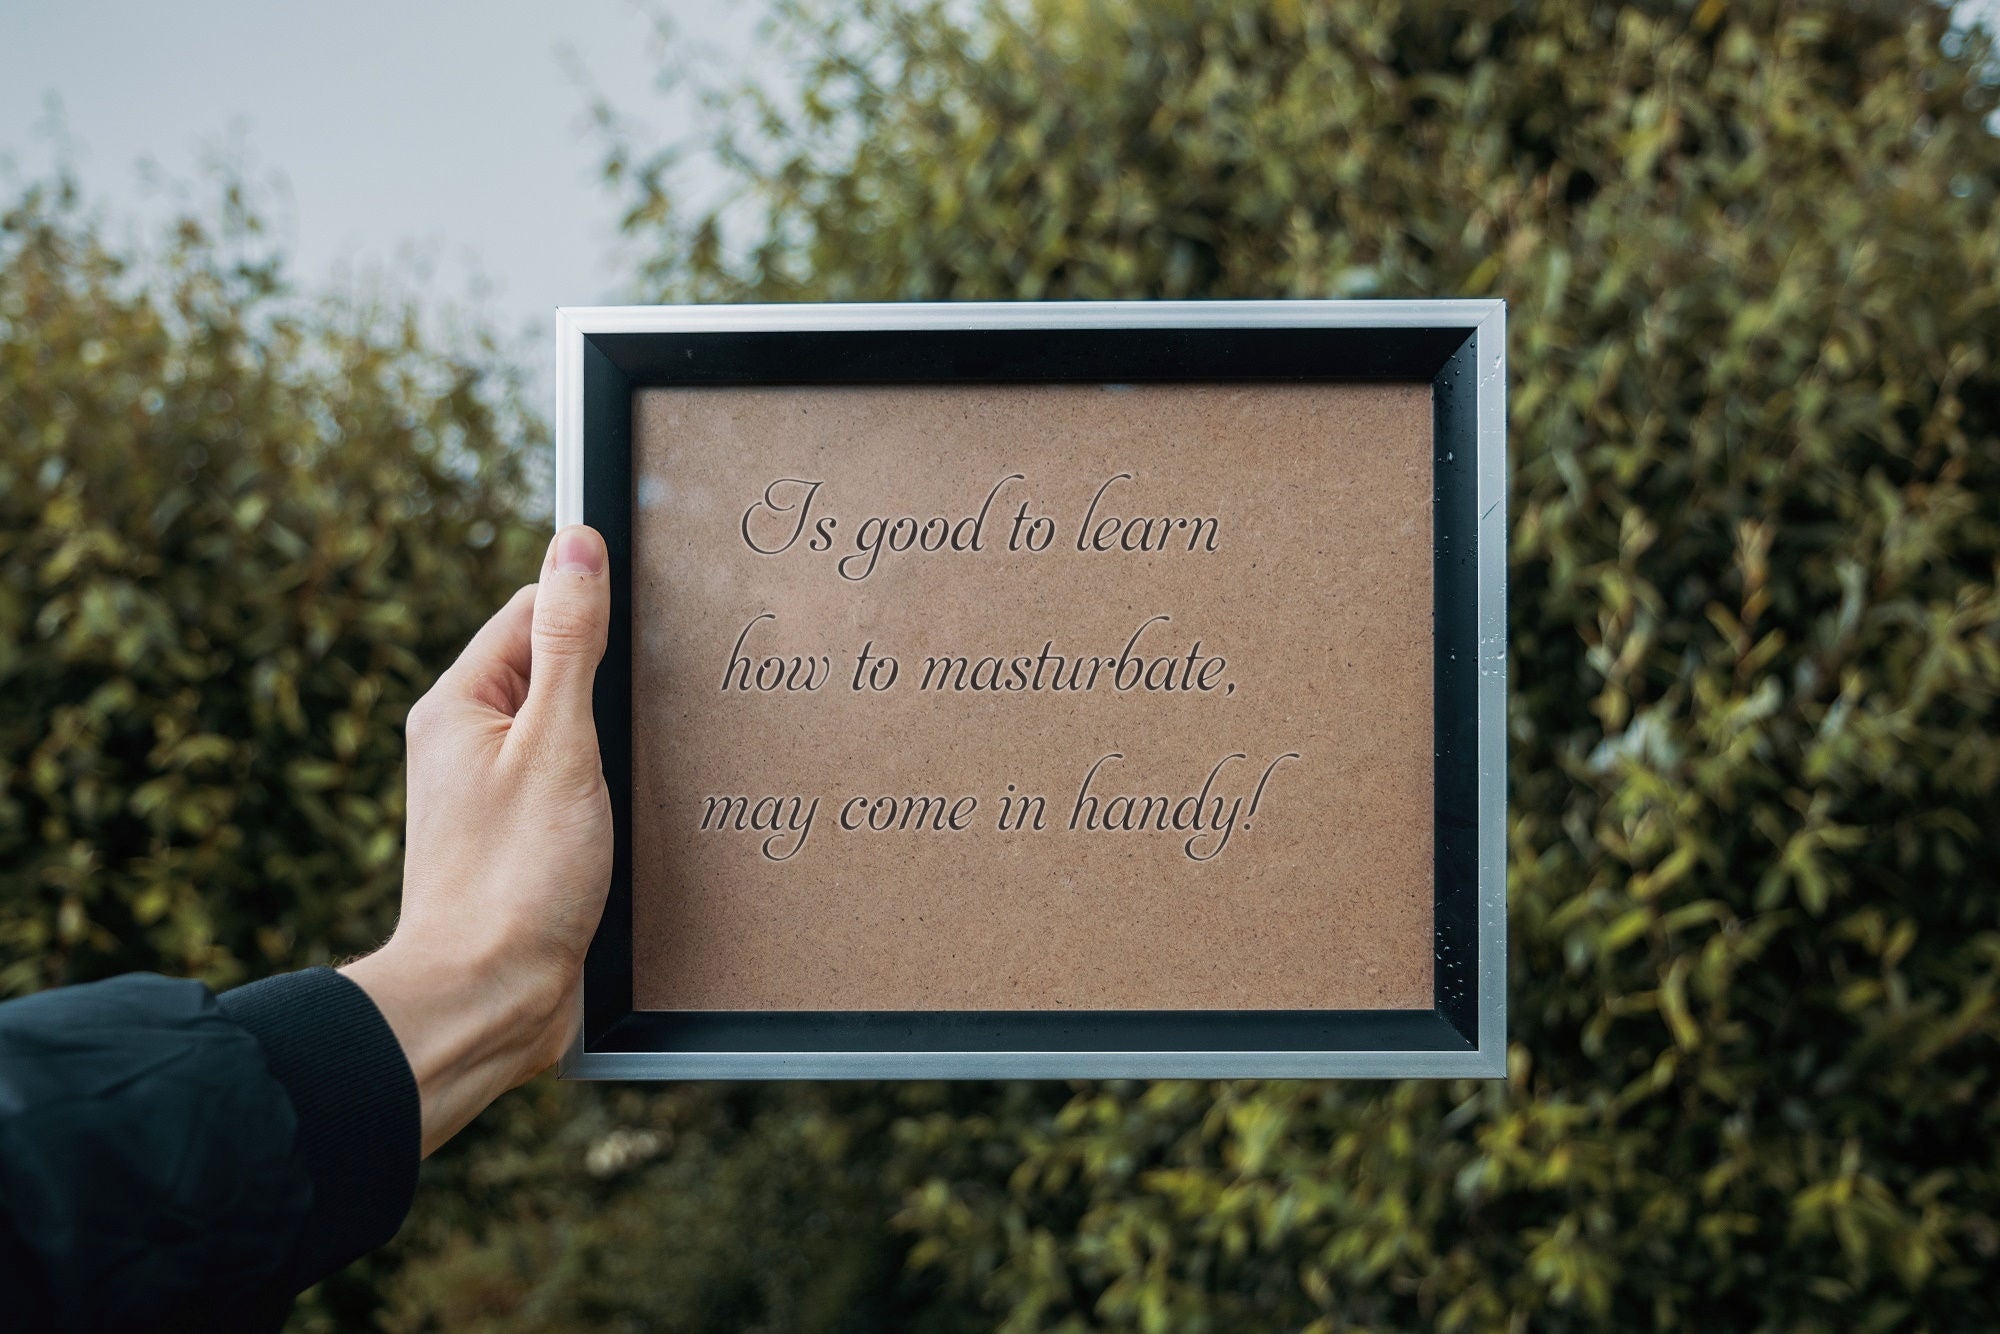 Is good to learn
how to masturbate,
may come in handy!